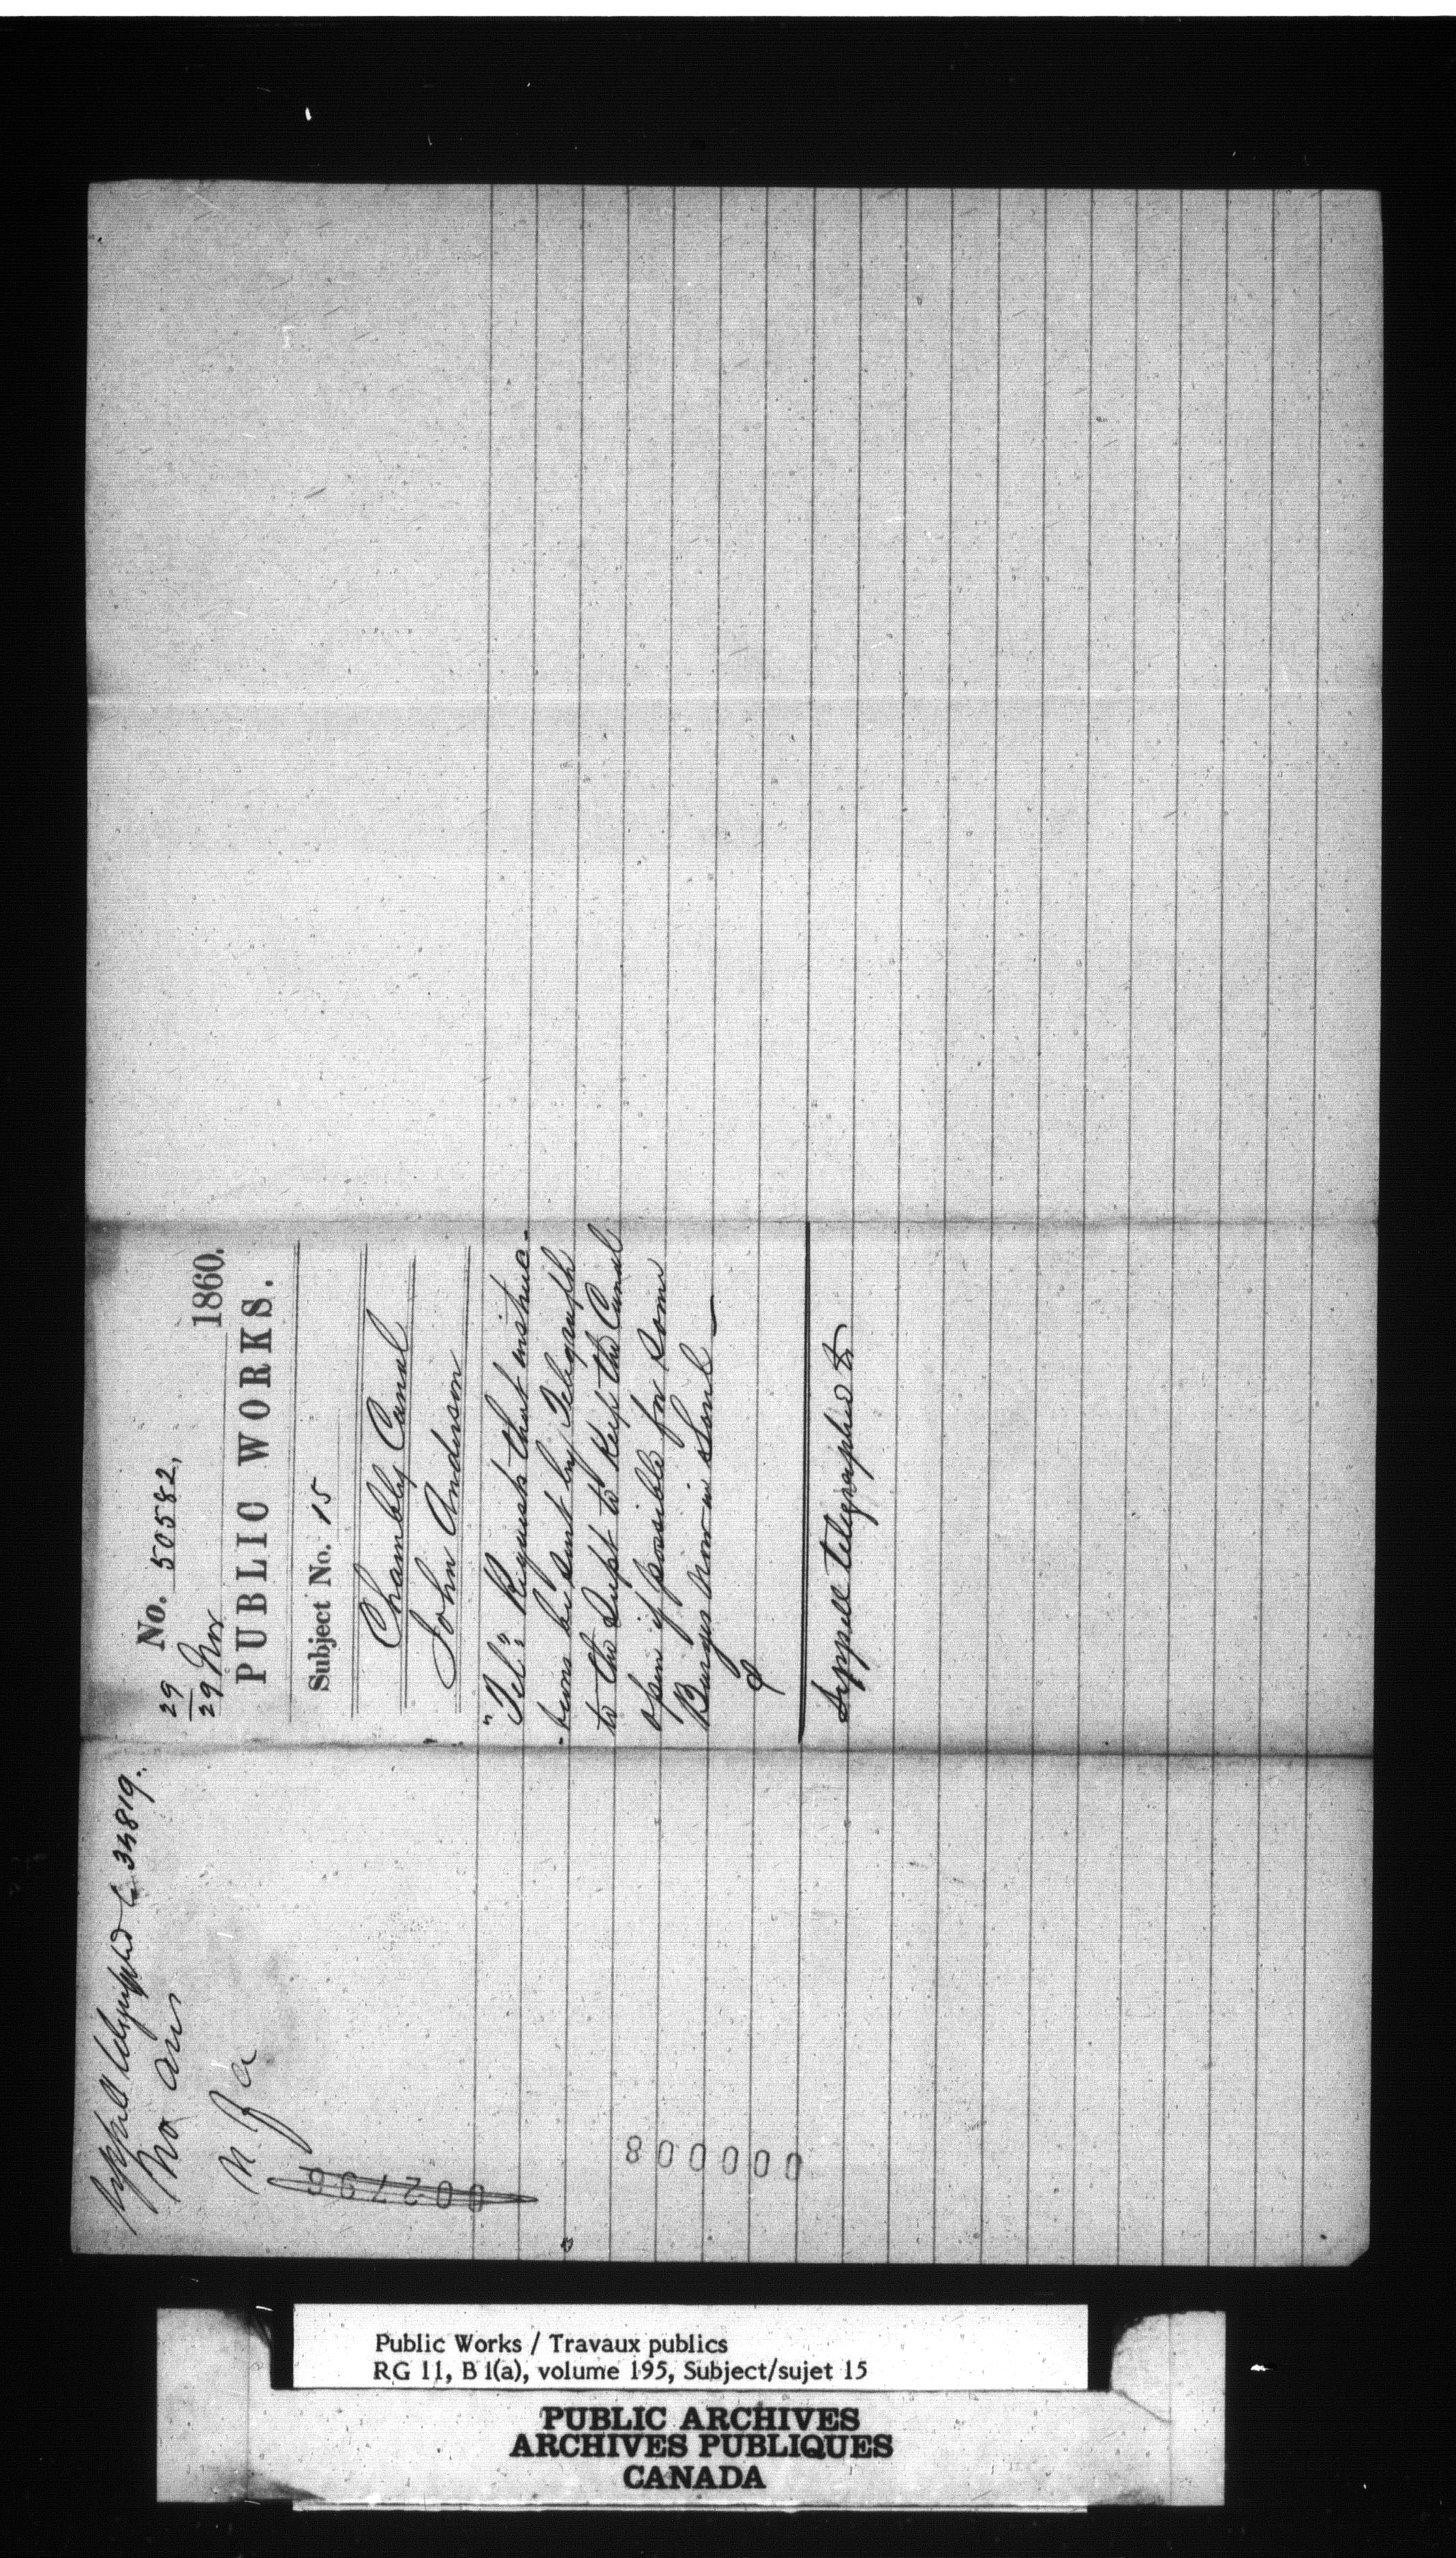 Sippell telegraphed C 34819.
No ans
N. F a
002796
800000
29 No. 50582,
29 Nov 1860.
PUBLIC WORKS.
Subject No. 15
Chambly Canal
John Anderson
"Tel": Requests that instruc-
-tions be sent by Telegraph
to the Supt to keep the Canal
open if possible for some
Barges now in Sorel —
Sippell telegraphed to
Public Works / Travaux publics
RG 11, B 1(a), volume 195, Subject/sujet 15
PUBLIC ARCHIVES
ARCHIVES PUBLIQUES
CANADA